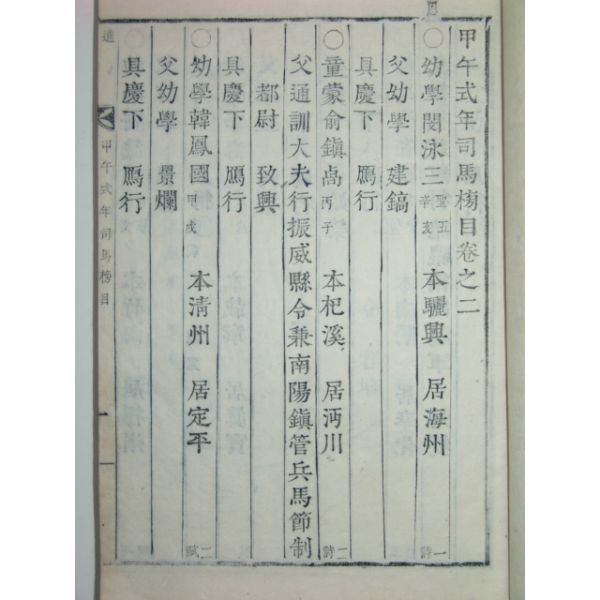 甲午式年司馬榜目卷之二
○幼學閔泳三 聖五 辛亥 本驪興 居海州 一詩
父幼學 建鎬
具慶下 鴈行
○童蒙俞鎭 丙子 本杞溪 居沔川 二詩
父通訓大夫行振威縣令兼南陽鎭管兵馬節制
都尉 致興
具慶下 鴈行
○幼學韓鳳國 甲戌 本淸州 居定平 二賦
父幼學 景爛
具慶下 鴈行
進 甲午式年司馬榜目 一